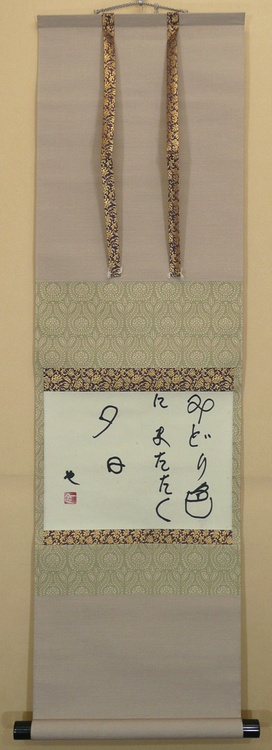 みどり色
にまたたく
夕日